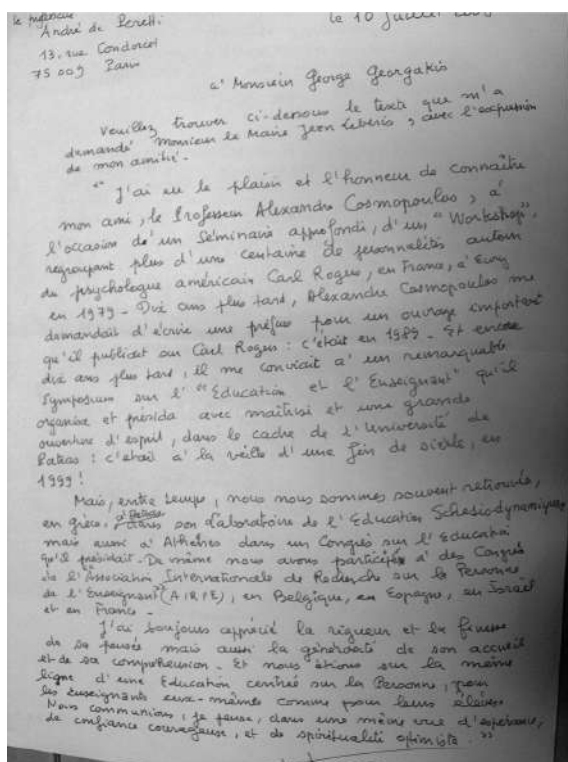 André de Peretti
le 10 Juillet
13, rue Condorcet
75009 Paris
à Monsieur George Georgakis
Veuillez trouver ci-dessous le texte que m'a
demandé Monsieur le Maire Jean Leberis, avec l'expression
de mon amitié.
" J'ai eu le plaisir et l'honneur de connaître
mon ami, le Professeur Alexandre Cosmopoulos, à
l'occasion d'un Séminaire approfondi, d'un "Workshop",
regroupant plus d'une centaine de personnalités autour
du psychologue américain Carl Rogers, en France, à
en 1979 - Dix ans plus tard, Alexandre Cosmopoulos me
demandait d'écrire une préface pour un ouvrage important
qu'il publiait sur Carl Rogers : c'était en 1989 - Et encore
dix ans plus tard, il me conviait à un remarquable
Symposium sur l'"Education et l'Enseignant" qu'il
organisa et présida avec maîtrise et une grande
ouverture d'esprit, dans le cadre de l'Université de
Patras : c'était à la veille d'une fin de siècle, en
1999 !
Mais, entre temps, nous nous sommes souvent retrouvés,
en grèce, à Patras, dans son Laboratoire de l'Education Schesiodynamique,
mais aussi à Athènes dans un Congrès sur l'Education
qu'il présidait. De même nous avons participé à des Congrès
de l'Association Internationale de Recherche sur la Personne
de l'Enseignant (AIRPE), en Belgique, en Espagne, en Israël
et en France -
J'ai toujours apprécié la rigueur et la finesse
de sa pensée mais aussi la générosité de son accueil
et de sa compréhension - Et nous étions sur la même
ligne d'une Education centrée sur la Personne, pour
les enseignants eux-mêmes comme pour leurs élèves
Nous communions, je pense, dans une même vue d'espérance,
de confiance courageuse, et de spiritualité optimiste. "